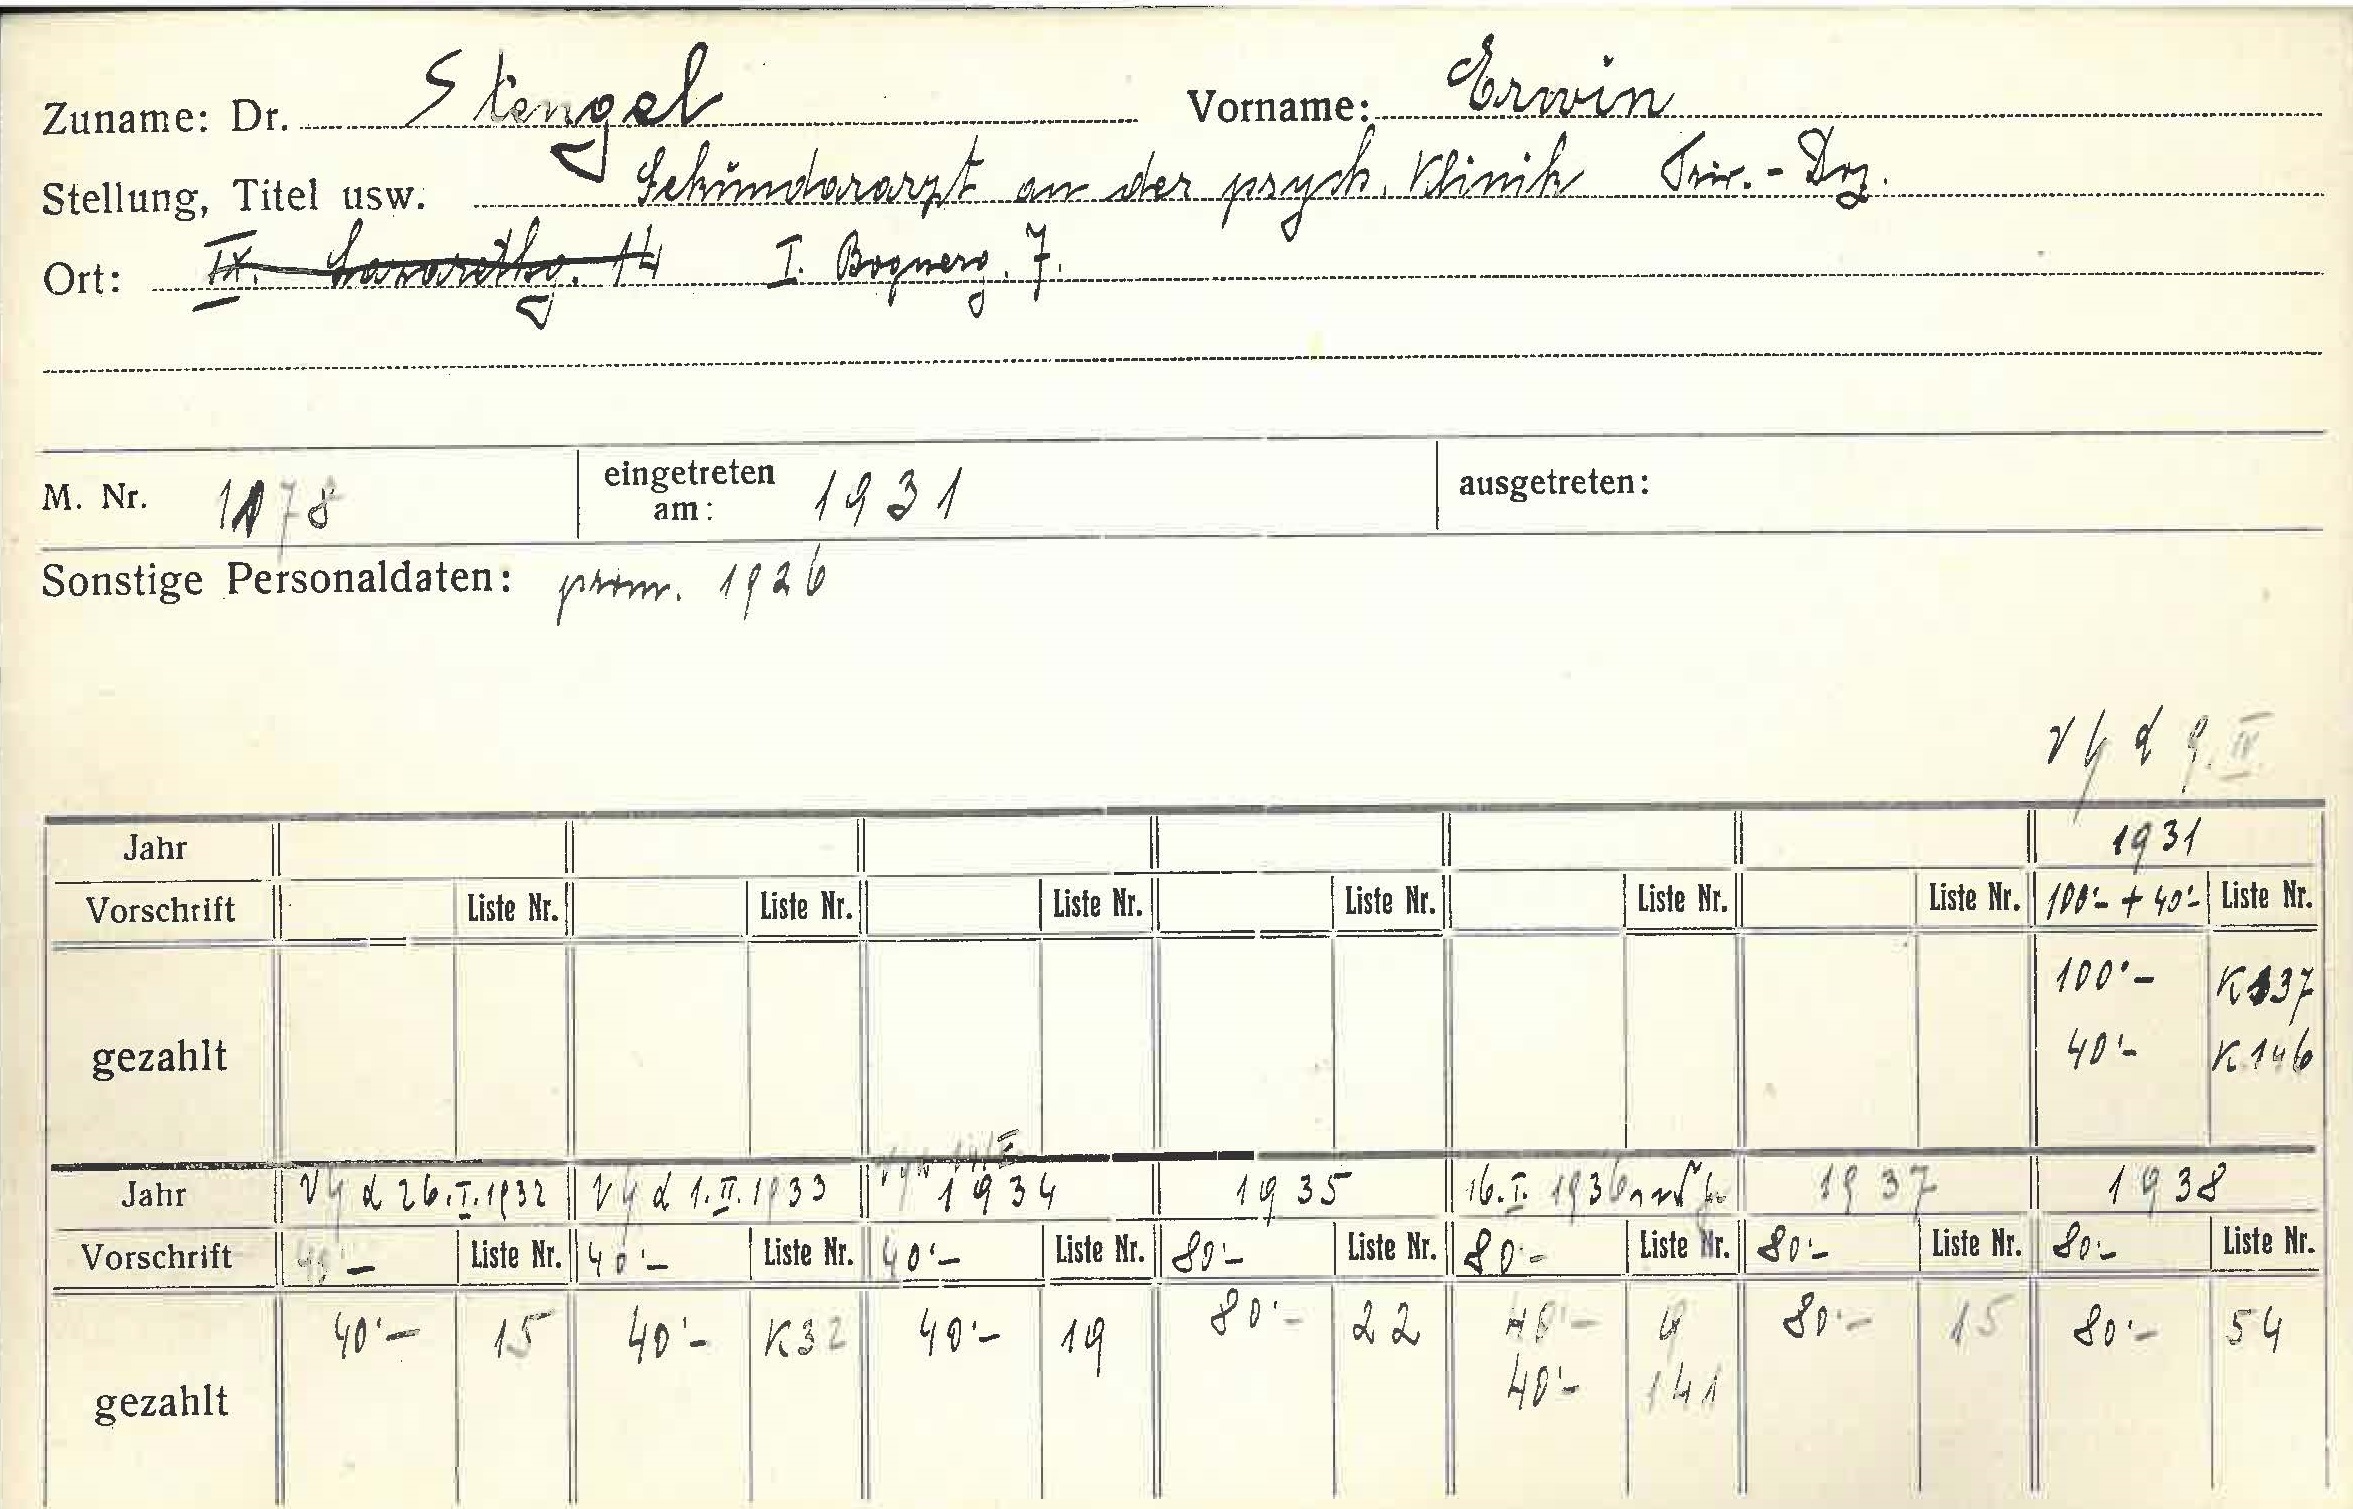 Zuname: Dr. Stengel Vorname: Erwin
Stellung, Titel usw. Sekundararzt an der psych. Klinik Priv.-Doz.
Ort: IX. Lazarethg. 14 I. Bognerg. 7.
M. Nr. 1178 eingetreten am: 1931 ausgetreten:
Sonstige Personaldaten: prom. 1926
9. IV.
Jahr 1931
Vorschrift Liste Nr. Liste Nr. Liste Nr. Liste Nr. Liste Nr. Liste Nr. 100'- + 40'- Liste Nr.
100'- K 137
gezahlt 40'- K 146
Jahr 26.I.1932 1.II.1933 1934 1935 16.I. 1936 1937 1938
Vorschrift 40'- Liste Nr. 40'- Liste Nr. 40'- Liste Nr. 80'- Liste Nr. 80'- Liste Nr. 80'- Liste Nr. 80'- Liste Nr.
40'- 15 40'- K32 40'- 19 80'- 22 40'- 9 80'- 15 80'- 54
gezahlt 40'- 141